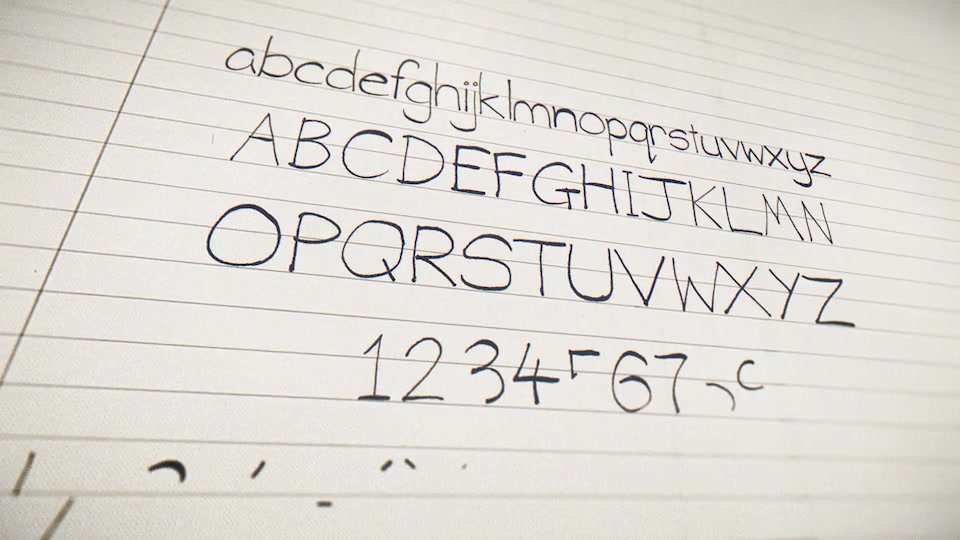 abcdefghijklmnopqrstuvwxyz
ABCDEFGHIJKLMN
OPQRSTUVWXYZ
1234 67